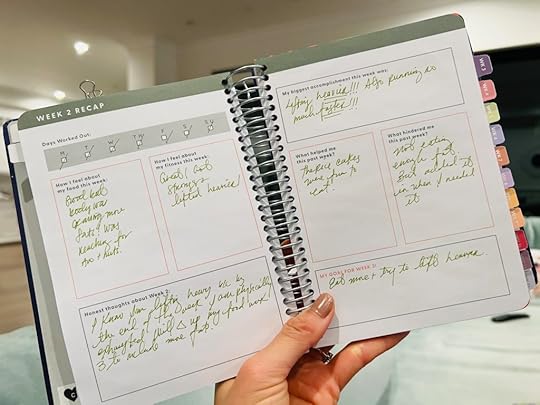 WEEK 2 RECAP
Days Worked Out:
M T W TH F S SU
How I feel about
my food this week:
Good, but
body was
craving more
fats! I was
reaching for
+ nuts.
How I feel about
my fitness this week:
Great! Got
stronger
lifted heavier!
Honest thoughts about Week 2:
I know I'm lifting heavy b/c by
the end of the week I am physically
exhausted. Will Δ up my food
3, to include more fats.
My biggest accomplishment this week was:
Lifting heavier!!! Also running so
much faster!!!
What helped me
this past week?
cakes
were fun to
eat!
What hindered me
this past week?
Not eating
enough fat,
But added it
in when I needed
it
MY GOAL FOR WEEK 3:
Eat more + try to lift heavier.
WK 3